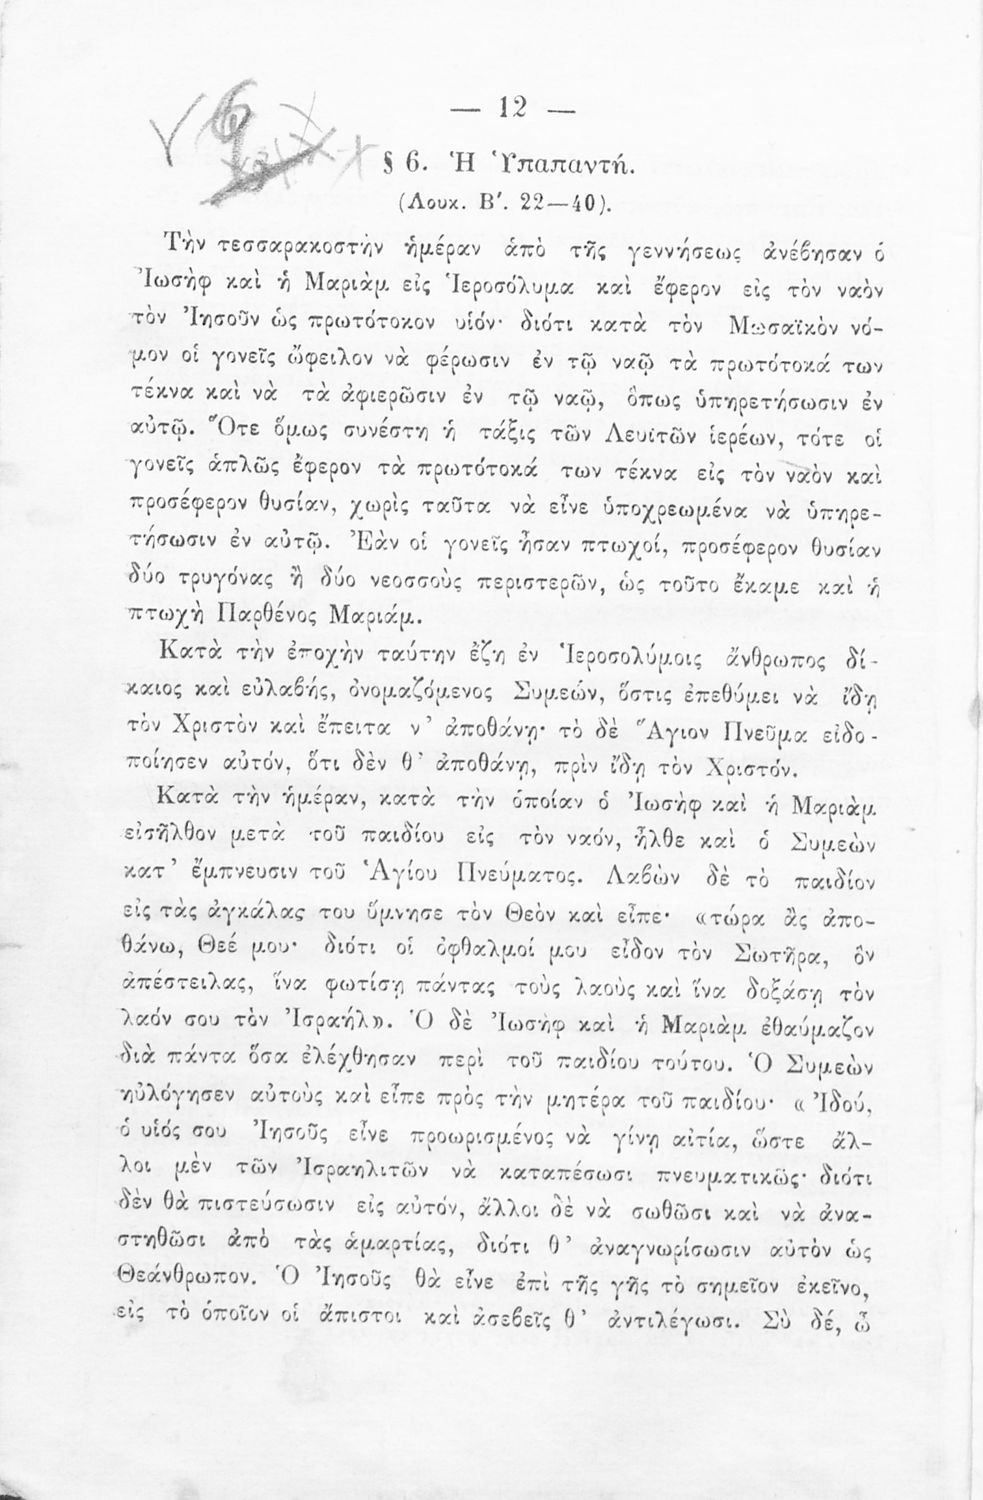 — 12 —
§ 6. Ἡ Ὑπαπαντή.
(Λουκ. Β′. 22—40).
Τὴν τεσσαρακοστὴν ἡμέραν ἀπὸ τῆς γεννήσεως ἀνέβησαν ὁ
Ἰωσὴφ καὶ ἡ Μαριὰμ εἰς Ἱεροσόλυμα καὶ ἔφερον εἰς τὸν ναὸν
τὸν Ἰησοῦν ὡς πρωτότοκον υἱόν· διότι κατὰ τὸν Μωσαϊκὸν νό-
μον οἱ γονεῖς ὤφειλον νὰ φέρωσιν ἐν τῷ ναῷ τὰ πρωτότοκά των
τέκνα καὶ νὰ τὰ ἀφιερῶσιν ἐν τῷ ναῷ, ὅπως ὑπηρετήσωσιν ἐν
αὐτῷ. Ὅτε ὅμως συνέστη ἡ τάξις τῶν Λευϊτῶν ἱερέων, τότε οἱ
γονεῖς ἁπλῶς ἔφερον τὰ πρωτότοκά των τέκνα εἰς τὸν ναὸν καὶ
προσέφερον θυσίαν, χωρὶς ταῦτα νὰ εἶνε ὑποχρεωμένα νὰ ὑπηρε-
τήσωσιν ἐν αὐτῷ. Ἐὰν οἱ γονεῖς ἦσαν πτωχοί, προσέφερον θυσίαν
δύο τρυγόνας ἢ δύο νεοσσοὺς περιστερῶν, ὡς τοῦτο ἔκαμε καὶ ἡ
πτωχὴ Παρθένος Μαριάμ.
Κατὰ τὴν ἐποχὴν ταύτην ἔζη ἐν Ἱεροσολύμοις ἄνθρωπος δί-
καιος καὶ εὐλαβής, ὀνομαζόμενος Συμεών, ὅστις ἐπεθύμει νὰ ἴδῃ
τὸν Χριστὸν καὶ ἔπειτα ν’ ἀποθάνῃ· τὸ δὲ Ἅγιον Πνεῦμα εἰδο-
ποίησεν αὐτόν, ὅτι δὲν θ’ ἀποθάνῃ, πρὶν ἴδῃ τὸν Χριστόν.
Κατὰ τὴν ἡμέραν, κατὰ τὴν ὁποίαν ὁ Ἰωσὴφ καὶ ἡ Μαριὰμ
εἰσῆλθον μετὰ τοῦ παιδίου εἰς τὸν ναόν, ἦλθε καὶ ὁ Συμεὼν
κατ’ ἔμπνευσιν τοῦ Ἁγίου Πνεύματος. Λαβὼν δὲ τὸ παιδίον
εἰς τὰς ἀγκάλας του ὕμνησε τὸν Θεὸν καὶ εἶπε· «τώρα ἂς ἀπο-
θάνω, Θεέ μου· διότι οἱ ὀφθαλμοί μου εἶδον τὸν Σωτῆρα, ὃν
ἀπέστειλας, ἵνα φωτίσῃ πάντας τοὺς λαοὺς καὶ ἵνα δοξάσῃ τὸν
λαόν σου τὸν Ἰσραήλ». Ὁ δὲ Ἰωσὴφ καὶ ἡ Μαριὰμ ἐθαύμαζον
διὰ πάντα ὅσα ἐλέχθησαν περὶ τοῦ παιδίου τούτου. Ὁ Συμεὼν
ηὐλόγησεν αὐτοὺς καὶ εἶπε πρὸς τὴν μητέρα τοῦ παιδίου· « Ἰδού,
ὁ υἱός σου Ἰησοῦς εἶνε προωρισμένος νὰ γίνῃ αἰτία, ὥστε ἄλ-
λοι μὲν τῶν Ἰσραηλιτῶν νὰ καταπέσωσι πνευματικῶς· διότι
δὲν θὰ πιστεύσωσιν εἰς αὐτόν, ἄλλοι δὲ νὰ σωθῶσι καὶ νὰ ἀνα-
στηθῶσι ἀπὸ τὰς ἁμαρτίας, διότι θ’ ἀναγνωρίσωσιν αὐτὸν ὡς
Θεάνθρωπον. Ὁ Ἰησοῦς θὰ εἶνε ἐπὶ τῆς γῆς τὸ σημεῖον ἐκεῖνο,
εἰς τὸ ὁποῖον οἱ ἄπιστοι καὶ ἀσεβεῖς θ’ ἀντιλέγωσι. Σὺ δέ, ὦ